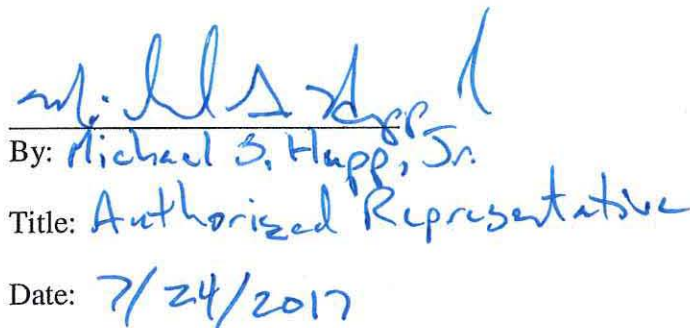 Michael S Hupp Jr
By: Michael S. Hupp, Jr.
Title: Authorized Representative
Date: 7/24/2017